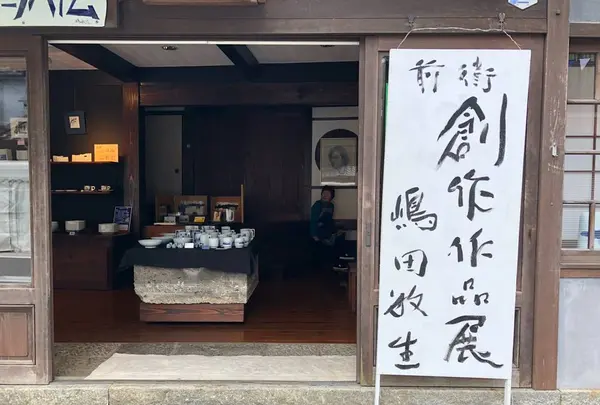 前街
創作作品展
嶋田敏生